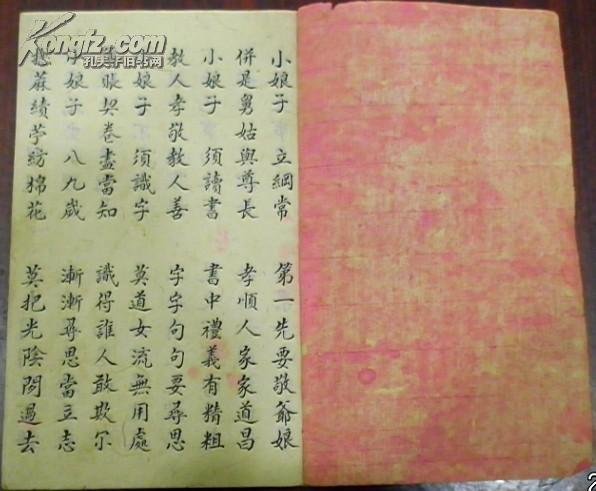 小娘子 立綱常 第一先要敬爺娘
併是舅姑與尊長 孝順人家家道昌
小娘子 須讀書 書中禮義有精粗
教人孝敬教人善 字字句句要尋思
娘子 須識字 莫道女流無用處
賬契卷盡當知 識得誰人敢欺尔
小娘子 八九歲 漸漸尋思當立志
蔴績苧紡棉花 莫把光陰閒過去
Kongfz.com
孔夫子旧书网
2